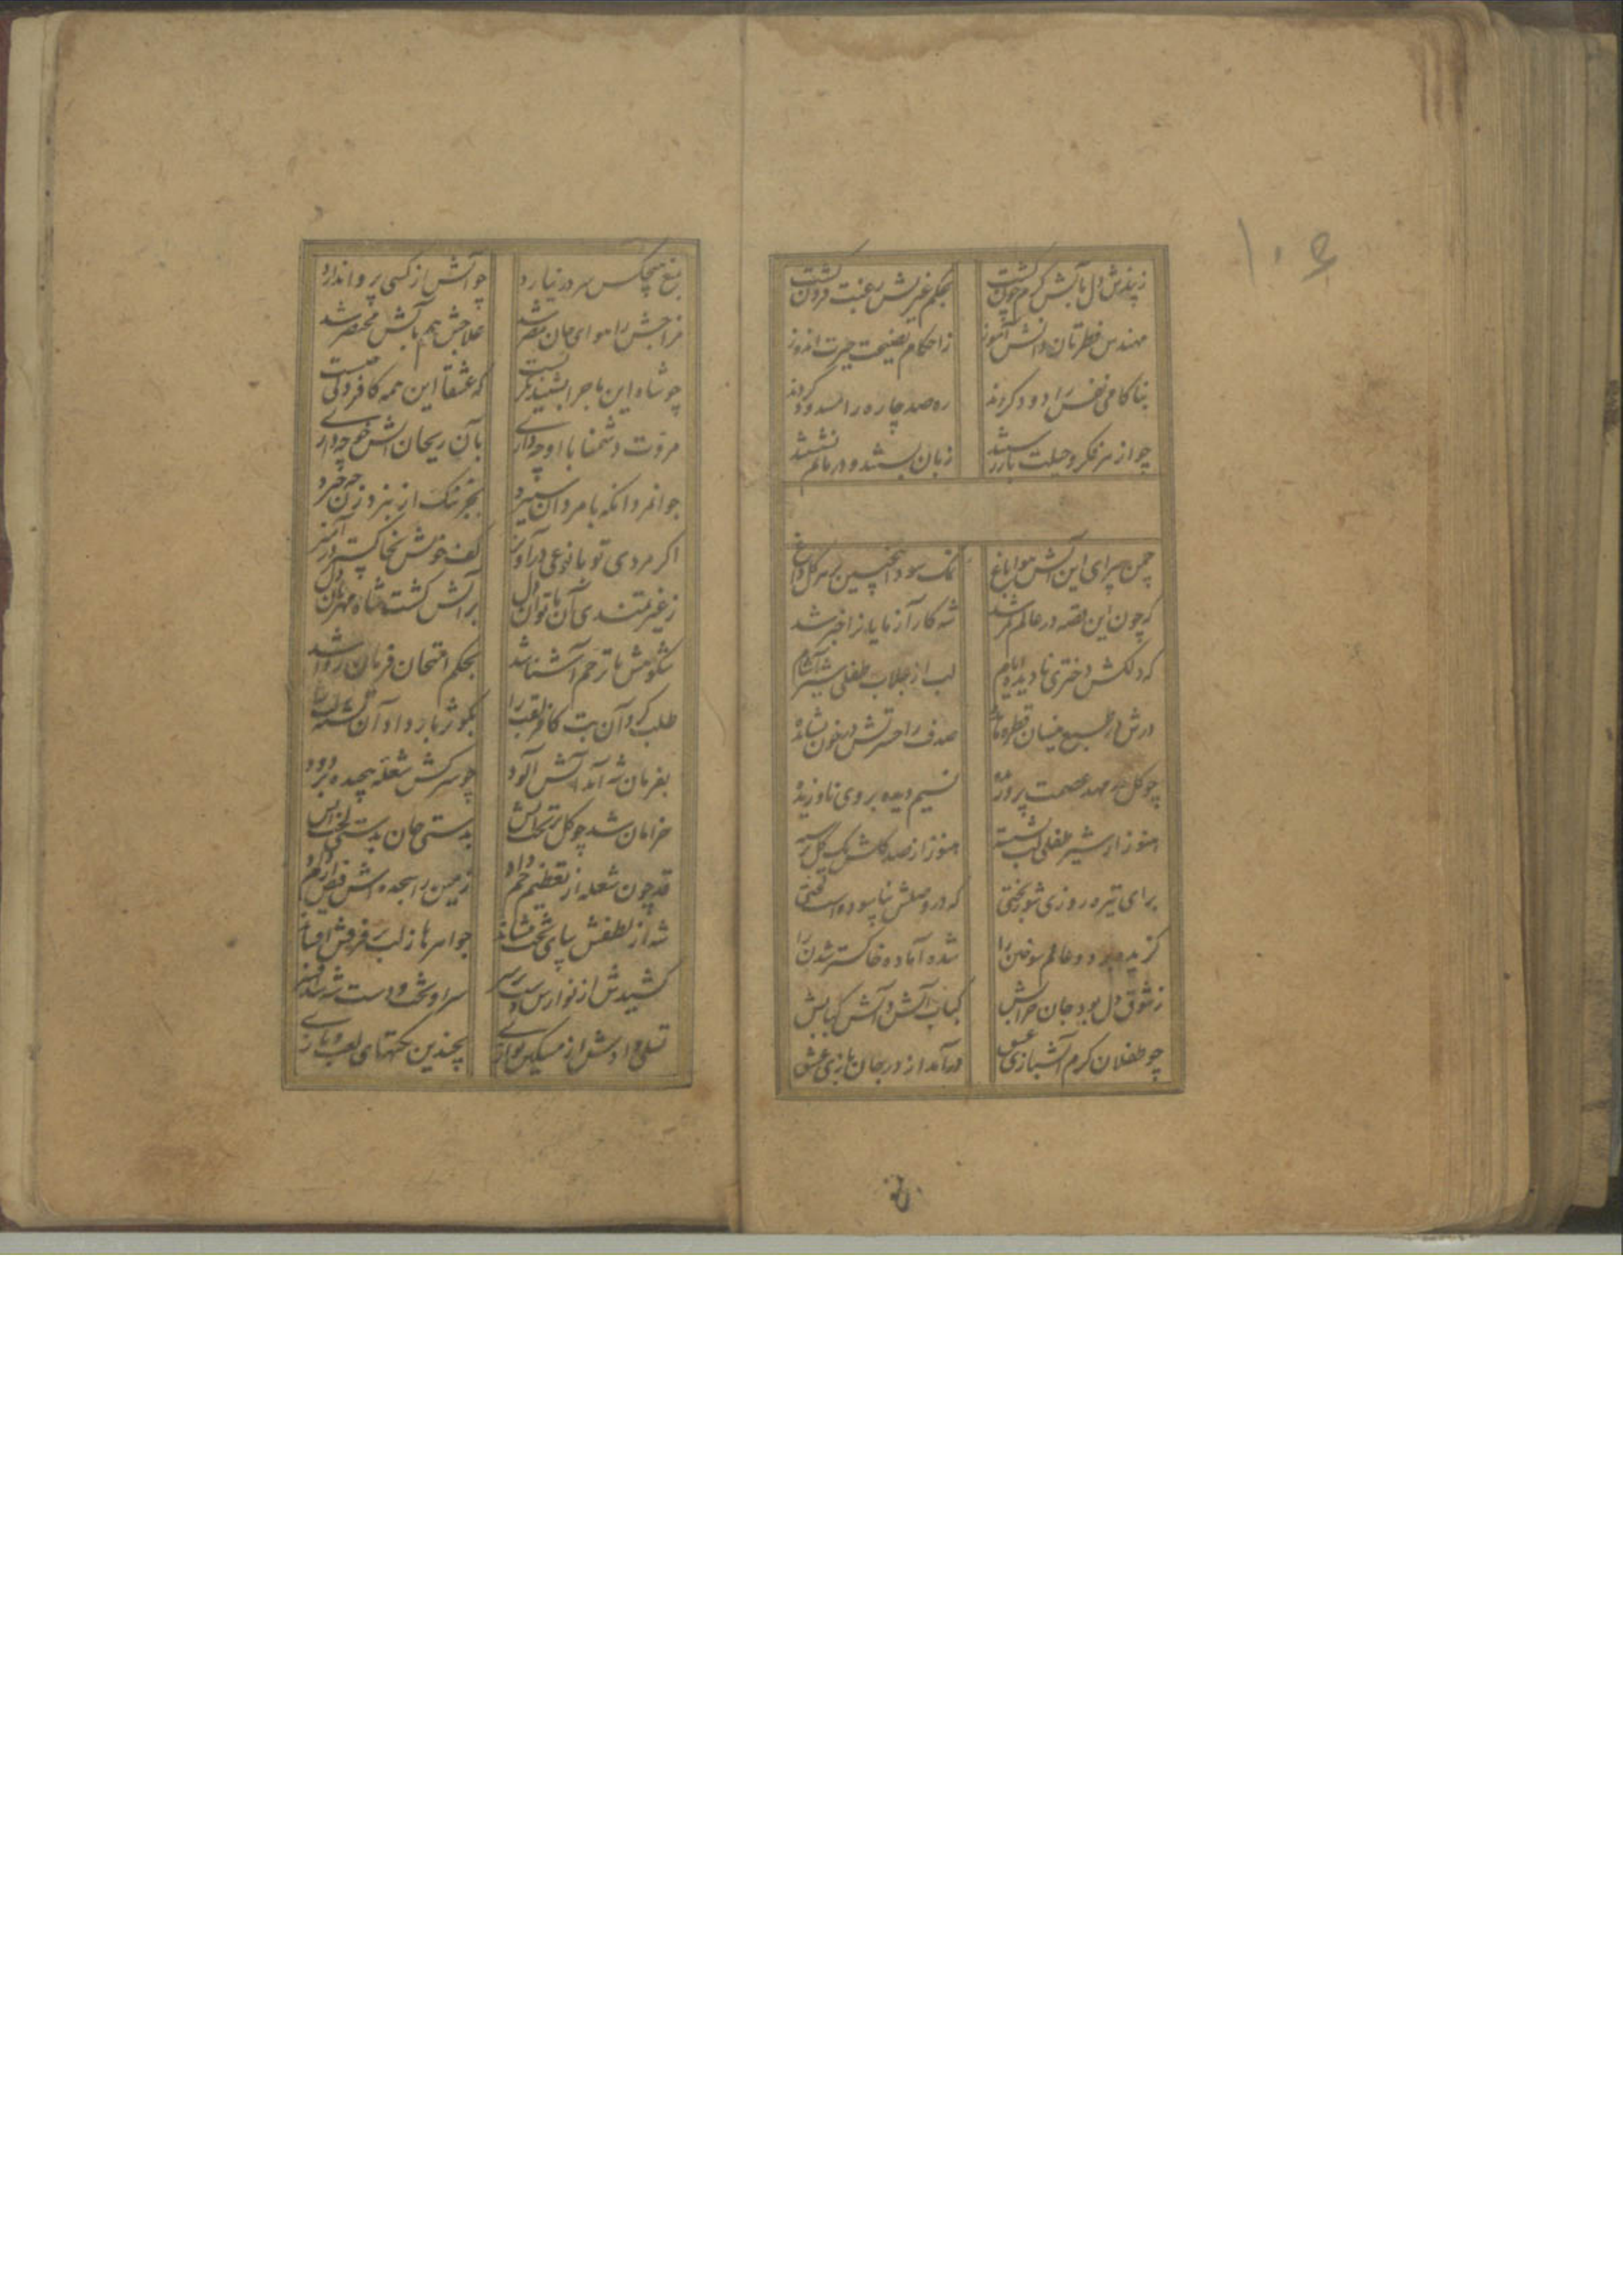 ز پندش دل بآتش گرم چون گشت بحکم غیرتش رغبت فزون گشت
مهندس فطرتان دانش آموز ز احکام نصیحت حیرت اندوز
بناکامی نفس را دود کردند ره صد چاره را مسدود کردند
چو از هر فکر و حیلت باز رستند زبان بستند و در ماتم نشستند
چمن پیرای این آتش هوا باغ نمک سود اینچنین بر هر گل داغ
که چون این قصه در عالم سمر شد شه کار آزما را زان خبر شد
که دلکش دختری نادیده ایام لب از جلاب طفلی شیر آشام
درش در طبع نیسان قطره صدف را حسرتش در خون نشانده
چو گل در مهد عصمت پروریده نسیم دیده بر روی ناوزیده
هنوز از شیر طفلی لب نشسته هنوز از صد گلش یک گل نرسته
برای تیره روزی شوربختی که در وصلش نیاسوده است لختی
گزیده بر دو عالم سوختن را شده آماده خاکستر شدن را
ز شوق دل بود جان خرابش کباب آتش و آتش کبابش
چو طفلان گرم آتشبازی عشق درآمد از در جان بازی عشق
بمنع هیچکس سر در نیارد چو آتش از کسی پروا ندارد
مزاجش را هوای جان مضر شد علاجش هم بآتش منحصر شد
چو شاه این ماجرا بشنید بگریست که عشقا این همه کافر دلی چیست
مروت دشمنا با او چه داری بآن ریحان آتش خو چه داری
جوانمرد آنکه با مردان ستیزد بجز ننگ از نبرد زن چه خیزد
اگر مردی تو با نوعی درآویز کف خونش بخاکستر درآمیز
ز غیرتمندی آن ناتوان دل بر آتش گشت شاه مهربان دل
شکوهش با ترحم آشنا شد بحکم امتحان فرمان روا شد
طلب کرد آن بت کافر لقب را بکوثر بار داد آن تشنه لب را
بفرمان شه آمد آتش آلود چو سرکش شعله پیچیده بر دود
خرامان شد چو گل بر تخت آتش بدستی جان بدستی لخت آتش
قد چون شعله از تعظیم خم داد زمین را سجده اش فیض ارم داد
شه از لطفش بپای تخت بنشاند جواهرها ز لب بر فرقش افشاند
کشیدش از نوازش دست بر سر سر او تخت و دست شه شد افسر
تسلی دادش از مسکین نوازی بچندین نکتهای لعب و بازی